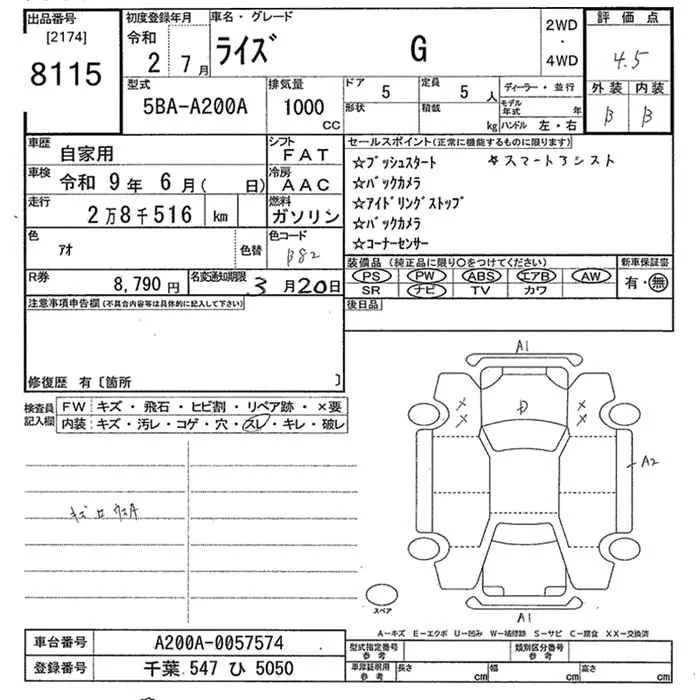 出品番号
[2174]
8115
初度登録年月
令和
2 7月
車名・グレード
ライズ G
2WD
・
4WD
評価点
4.5
外装 内装
B B
型式
5BA-A200A
排気量
1000
CC
ドア 5
形状
定員 5 人
積載 kg
ディーラー・並行
モデル年式 年
ハンドル 左・右
車歴
自家用
シフト
FAT
車検 令和 9年 6月( 日)
冷房
AAC
走行
2万8千516 km
燃料
ガソリン
色
アオ
色替
色コード
B82
R券
8,790円
名変通知期限
3月20日
セールスポイント(正常に機能するものに限ります)
☆プッシュスタート ☆スマートアシスト
☆バックカメラ
☆アイドリングストップ
☆バックカメラ
☆コーナーセンサー
装備品 (純正品に限り○をつけてください)
PS PW ABS エアB AW
SR ナビ TV カワ
新車保証書
有・無
後日品
注意事項申告欄(不具合内容等は具体的に記入して下さい)
修復歴 有〔箇所 〕
検査員記入欄
FW キズ・飛石・ヒビ割・リペア跡・×要
内装 キズ・汚レ・コゲ・穴・スレ・キレ・破レ
A1
D
×
×
×
×
A2
A1
スペア
A-キズ E-エクボ U-凹み W-補修跡 S-サビ C-腐食 XX-交換済
車台番号 A200A-0057574
登録番号 千葉 547 ひ 5050
型式指定番号
参考
類別区分番号
参考
車庫証明用
参考
長さ cm 幅 cm 高さ cm